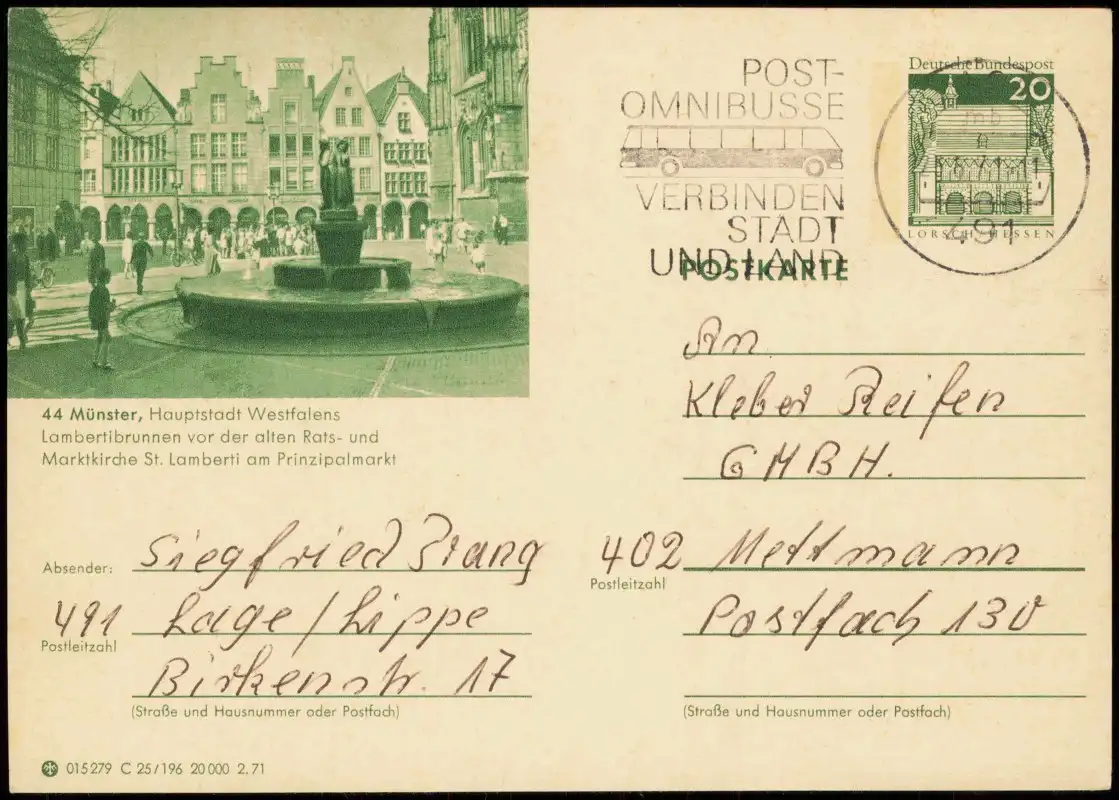 POST-
OMNIBUSSE
VERBINDEN
STADT
UND LAND
Deutsche Bundespost
20
LORSCH/HESSEN
491
POSTKARTE
44 Münster, Hauptstadt Westfalens
Lambertibrunnen vor der alten Rats- und
Marktkirche St. Lamberti am Prinzipalmarkt
An
Kleber Reifen
GMBH.
402 Mettmann
Postleitzahl
Postfach 130
(Straße und Hausnummer oder Postfach)
Absender: Siegfried Prang
491 Lage/Lippe
Postleitzahl
Birkenstr. 17
(Straße und Hausnummer oder Postfach)
015279 C 25/196 20000 2.71